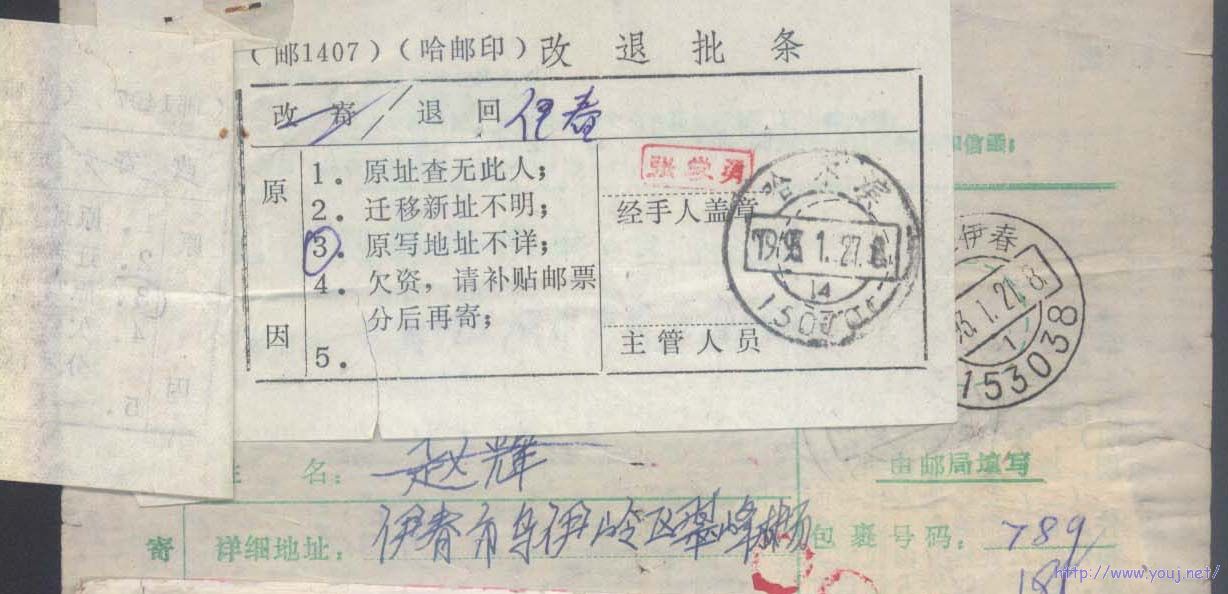 (邮1407)(哈邮印)改退批条
改寄/退回伊春
原因
1. 原址查无此人;
2. 迁移新址不明;
3. 原写地址不详;
4. 欠资,请补贴邮票
分后再寄;
5.
经手人盖章
主管人员
哈尔滨
1995.1.27.
14
伊春
.1.21.8
1
153038
和信函:
姓名:赵辉
由邮局填写
寄
详细地址:伊春市乌伊岭区翠峰林场
包裹号码:789
http://www.youj.net/